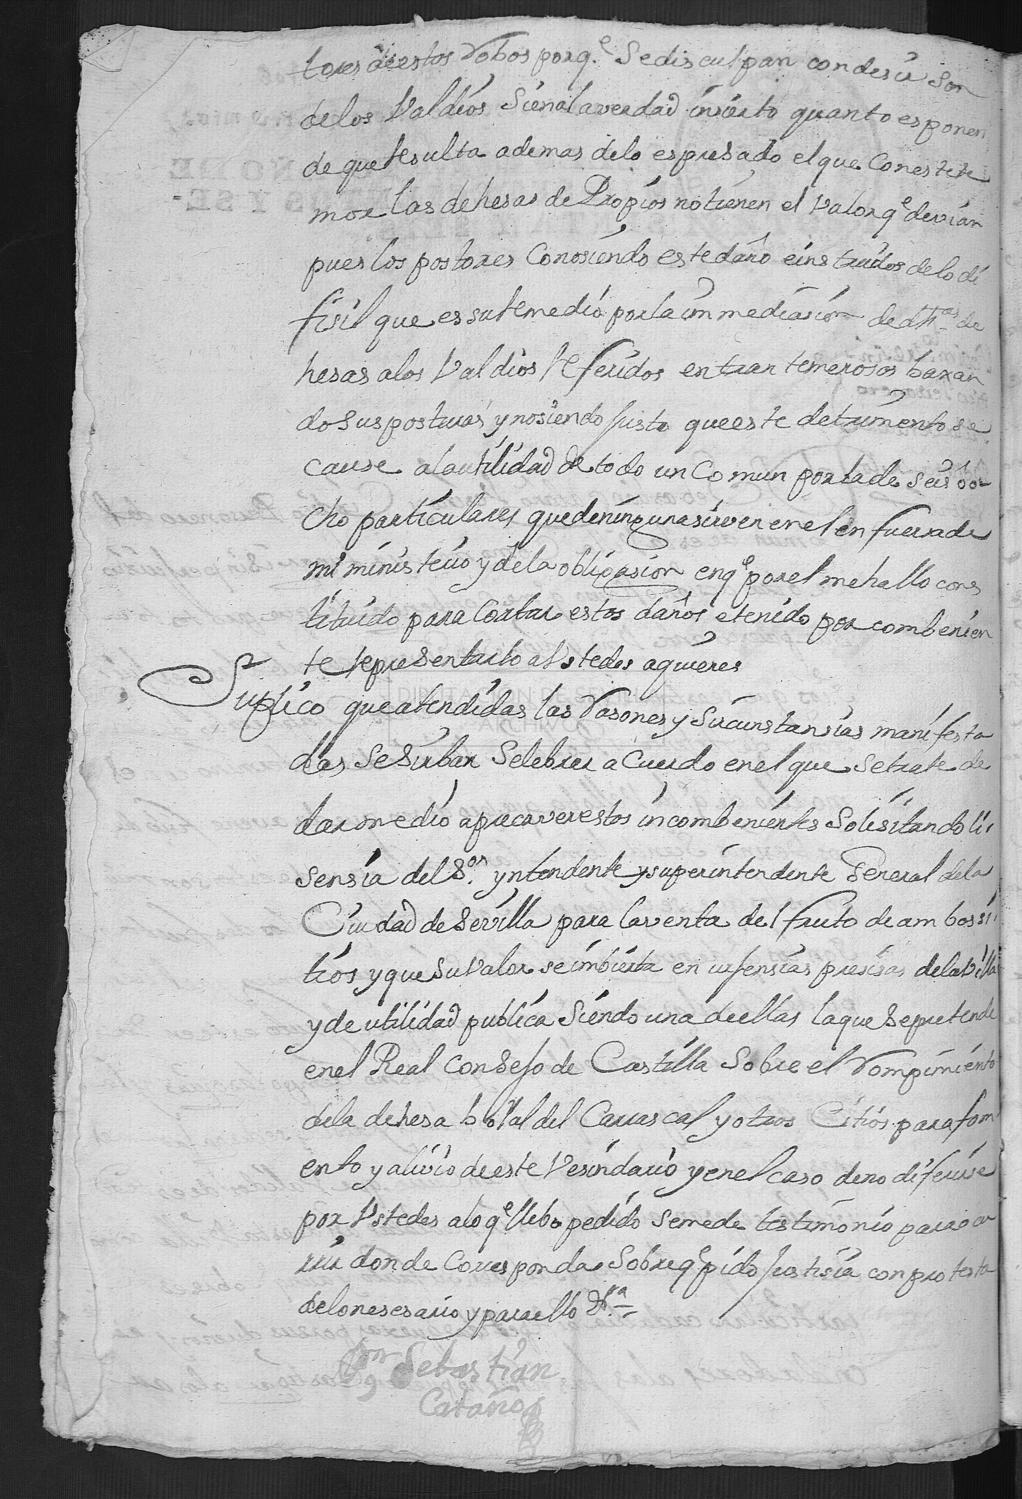 tores de estos Robos porq.e Sedisculpan condesir son
delos Valdios Siendo la verdad insierto quanto esponen
de que resulta ademas delo espresado el que Coneste te
mor las dehesas de Propios notienen el Valor q.e devian
pues los postores Conosiendo este daño einstruidos delo di
fisil que es su remedio por la inmediasion de dhas de
hesas alos Valdios Referidos entran temerosos baxan
do sus posturas y nosiendo Justo que este detrimento se
cause ala utilidad de todo un Comun por la de seis o o
cho particulares que deninguna sirven en el en fuersa de
mi ministerio y dela obligasion enq.e por el me hallo cons
tituido para Cortar estos daños etenido por combenien
te representarlo a Ustedes aquienes
Suplico que atendidas las Rasones y Sircunstansias manifesta
das Se Sirban Selebrar aCuerdo en el que Setrate de
dar medio a precaver estos incombenientes Solisitando li
sensia del S.or yntendente y superintendente General dela
Ciudad de Sevilla para la venta del fruto de ambos si
tios y que Su Valor se imbierta en urjensias presisas dela Villa
y de utilidad publica Siendo una de ellas la que Sepretende
en el Real Consejo de Castilla Sobre el Rompimiento
dela dehesa boial del Carrascal y otros Citios para fom
ento y alivio de este Vesindario y en el caso de no diferirse
por Ustedes alo q.e llebo pedido Semede testimonio para ocu
rrir donde Corresponda Sobre q.e pido Justisia con protesta
delonesesario y para ello &.a
Sebastian
Cataño